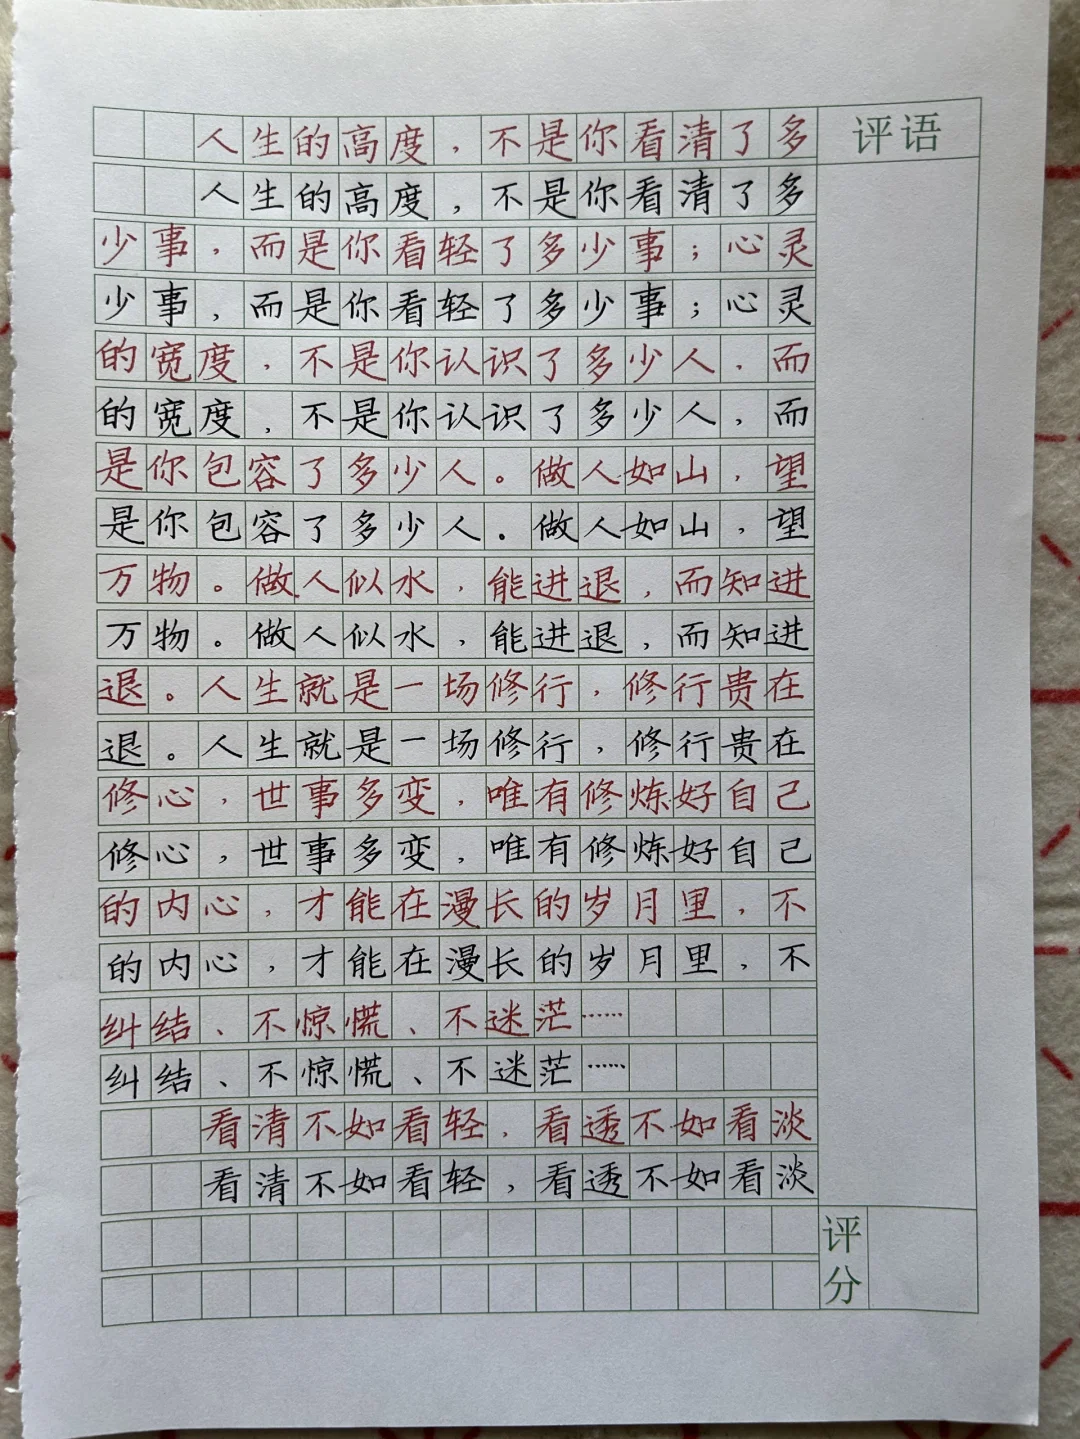 人生的高度，不是你看清了多
评语
人生的高度，不是你看清了多
少事，而是你看轻了多少事；心灵
少事，而是你看轻了多少事；心灵
的宽度，不是你认识了多少人，而
的宽度，不是你认识了多少人，而
是你包容了多少人。做人如山，望
是你包容了多少人。做人如山，望
万物。做人似水，能进退，而知进
万物。做人似水，能进退，而知进
退。人生就是一场修行，修行贵在
退。人生就是一场修行，修行贵在
修心，世事多变，唯有修炼好自己
修心，世事多变，唯有修炼好自己
的内心，才能在漫长的岁月里，不
的内心，才能在漫长的岁月里，不
纠结、不惊慌、不迷茫……
纠结、不惊慌、不迷茫……
看清不如看轻，看透不如看淡
看清不如看轻，看透不如看淡
评
分